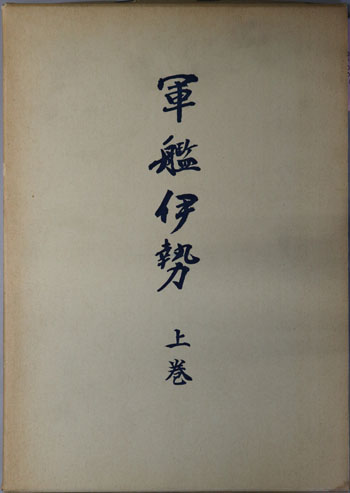 軍艦伊勢
上巻